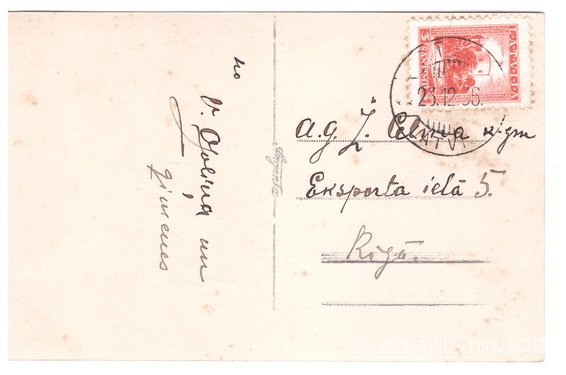 no
V.
un
ģimenes
A.g. J. Celiņa k-gm
Eksporta ielā 5.
Rīgā.
LATVIJA
23.12.36.